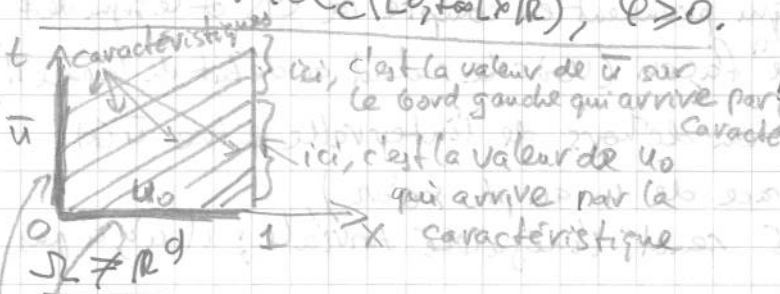 C_c([0,+∞[×ℝ), φ⩾0.
t caractéristiques
ici, c'est la valeur de ū sur
le bord gauche qui arrive par
caracté
ū
ici, c'est la valeur de u₀
qui arrive par la
caractéristique
u₀
0 1 x
Ω ≠ ℝᵈ